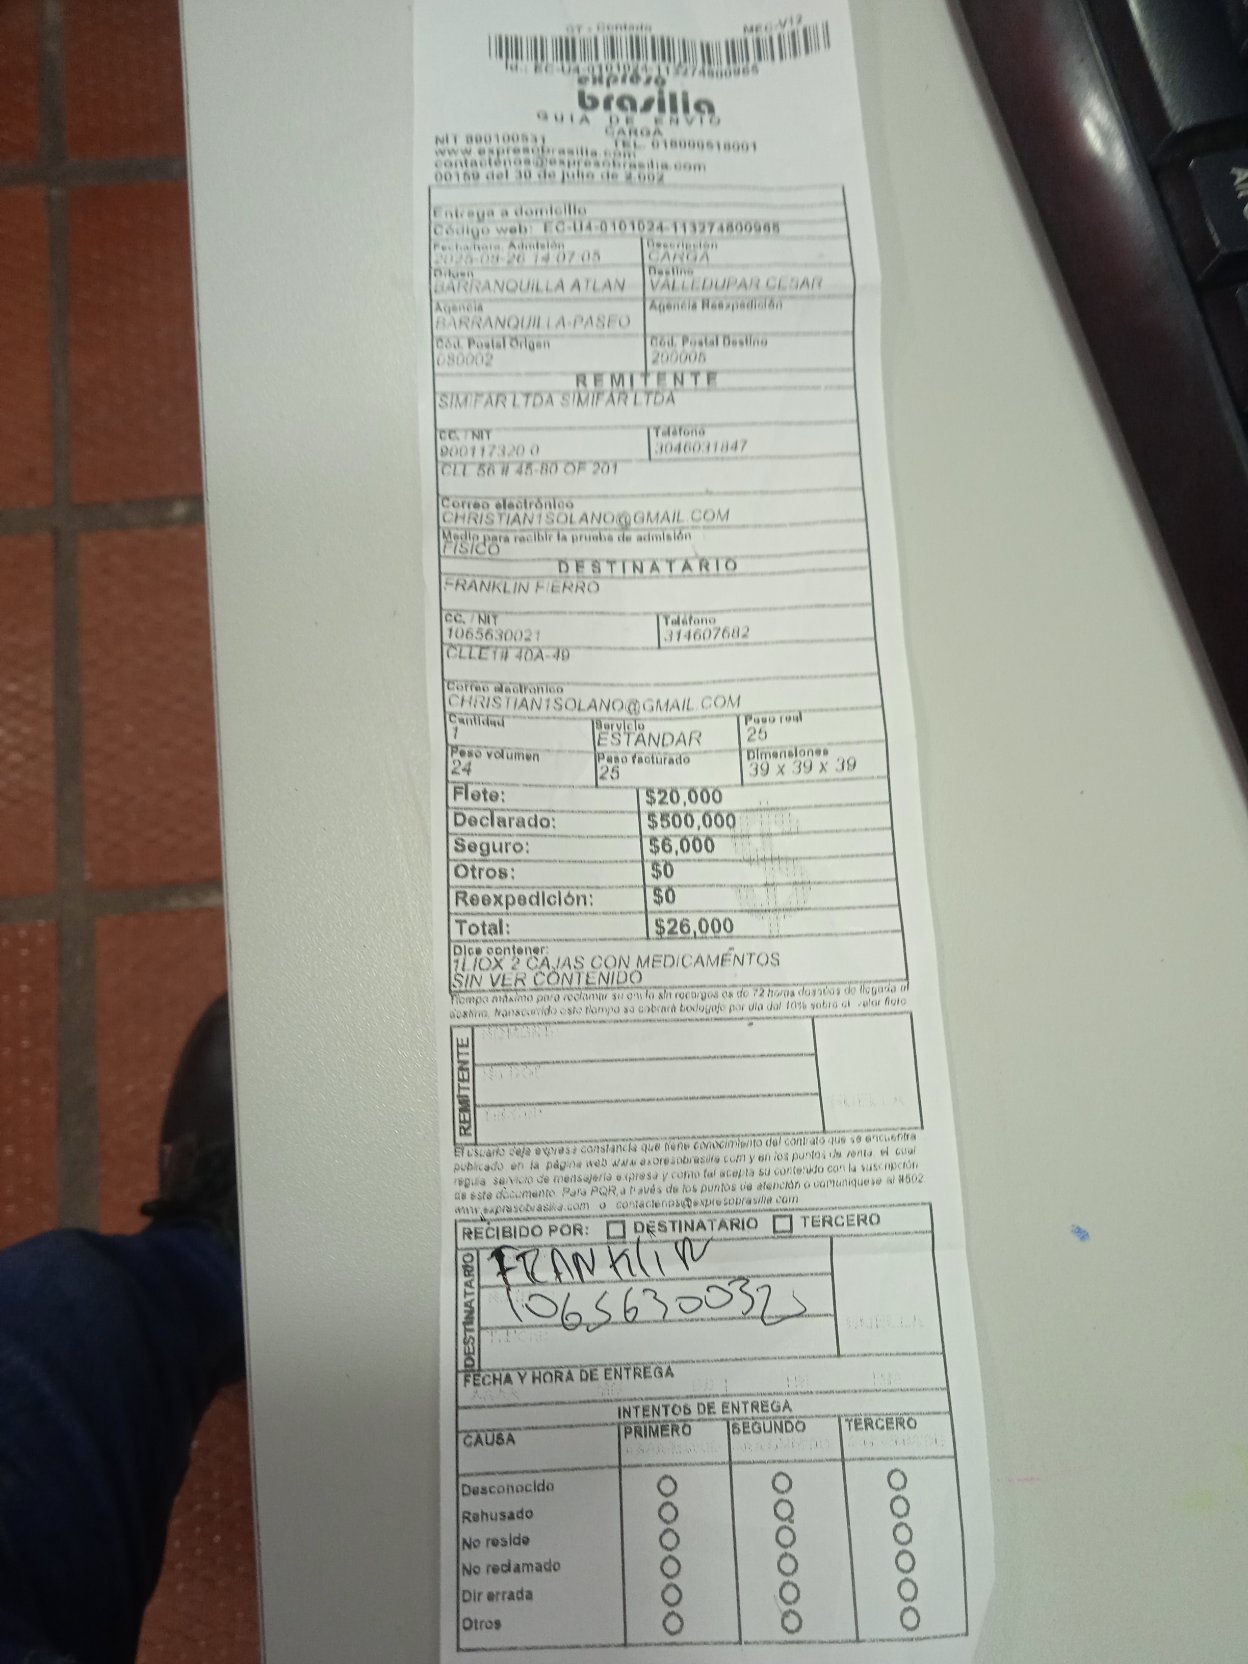 GT - Contado MEC-V12
Id.: EC-U4-0101024-113274800965
expreso
brasilia
GUIA DE ENVIO
CARGA
NIT 890100531 TEL. 018000518001
www.expresobrasilia.com
contactenos@expresobrasilia.com
00169 del 30 de julio de 2.002
Entrega a domicilio
Código web: EC-U4-0101024-113274800965
Fecha/hora. Admisión Descripción
14:07:05 CARGA
Origen Destino
BARRANQUILLA ATLAN VALLEDUPAR CESAR
Agencia Agencia Reexpedición
BARRANQUILLA-PASEO
Cód. Postal Origen Cód. Postal Destino
080002 200005
REMITENTE
SIMIFAR LTDA SIMIFAR LTDA
CC. / NIT Teléfono
900117320 0 3046031847
CLL 56 # 45-80 OF 201
Correo electrónico
CHRISTIAN1SOLANO@GMAIL.COM
Medio para recibir la prueba de admisión
FISICO
DESTINATARIO
FRANKLIN FIERRO
CC. / NIT Teléfono
1065630021 314607682
CLLE1# 40A-49
Correo electronico
CHRISTIAN1SOLANO@GMAIL.COM
Cantidad Servicio Peso real
1 ESTANDAR 25
Peso volumen Peso facturado Dimensiones
24 25 39 x 39 x 39
Flete: $20,000
Declarado: $500,000
Seguro: $6,000
Otros: $0
Reexpedición: $0
Total: $26,000
Dice contener:
2 CAJAS CON MEDICAMENTOS
SIN VER CONTENIDO
Tiempo máximo para reclamar su envío sin recargos es de 72 horas después de llegada al
destino, transcurrido este tiempo se cobrará bodegaje por día del 10% sobre el valor flete
REMITENTE
HUELLA
El usuario deja expresa constancia que tiene conocimiento del contrato que se encuentra
publicado en la página web www.expresobrasilia.com y en los puntos de venta, el cual
regula servicio de mensajería expresa y como tal acepta su contenido con la suscripción
de este documento. Para PQR, a través de los puntos de atención o comuníquese al #502
www.expresobrasilia.com o contactenos@expresobrasilia.com
RECIBIDO POR: DESTINATARIO TERCERO
DESTINATARIO
FRANKlIN
HUELLA
FECHA Y HORA DE ENTREGA
INTENTOS DE ENTREGA
CAUSA PRIMERO SEGUNDO TERCERO
Desconocido
Rehusado
No reside
No reclamado
Dir errada
Otros